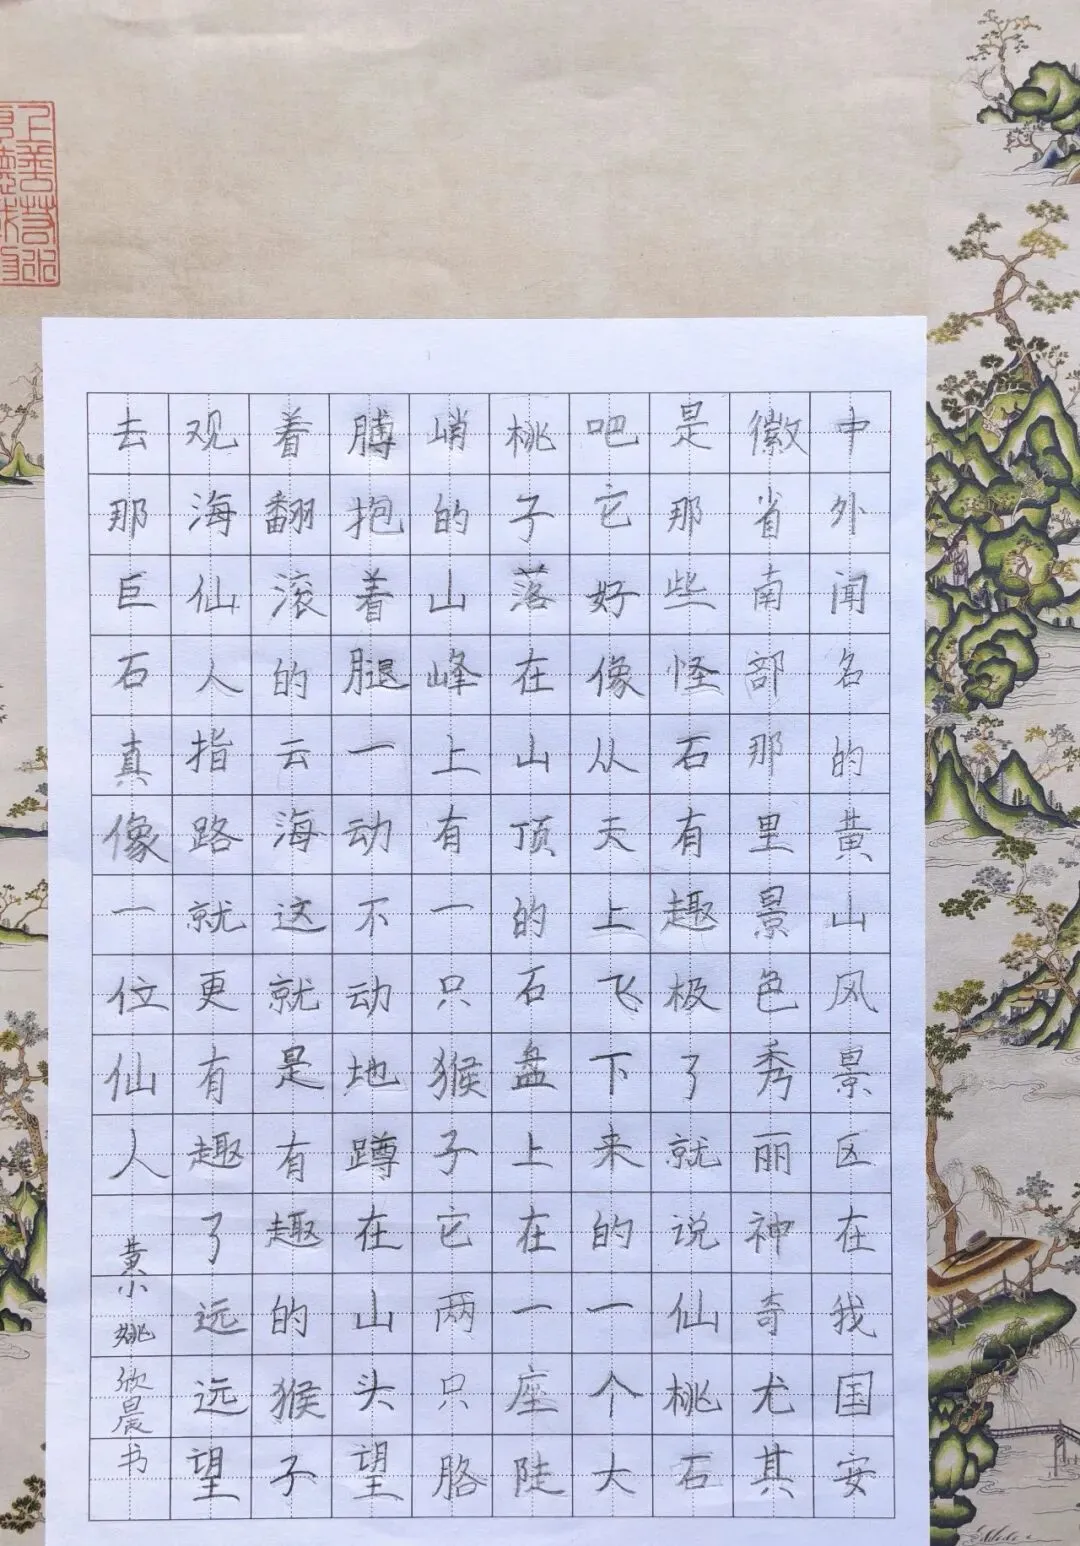 中外闻名的黄山风景区在我国安
徽省南部那里景色秀丽神奇尤其
是那些怪石有趣极了就说仙桃石
吧它好像从天上飞下来的一个大
桃子落在山顶的石盘上在一座陡
峭的山峰上有一只猴子它两只胳
膊抱着腿一动不动地蹲在山头望
着翻滚的云海这就是有趣的猴子
观海仙人指路就更有趣了远远望
去那巨石真像一位仙人
书
上善若水